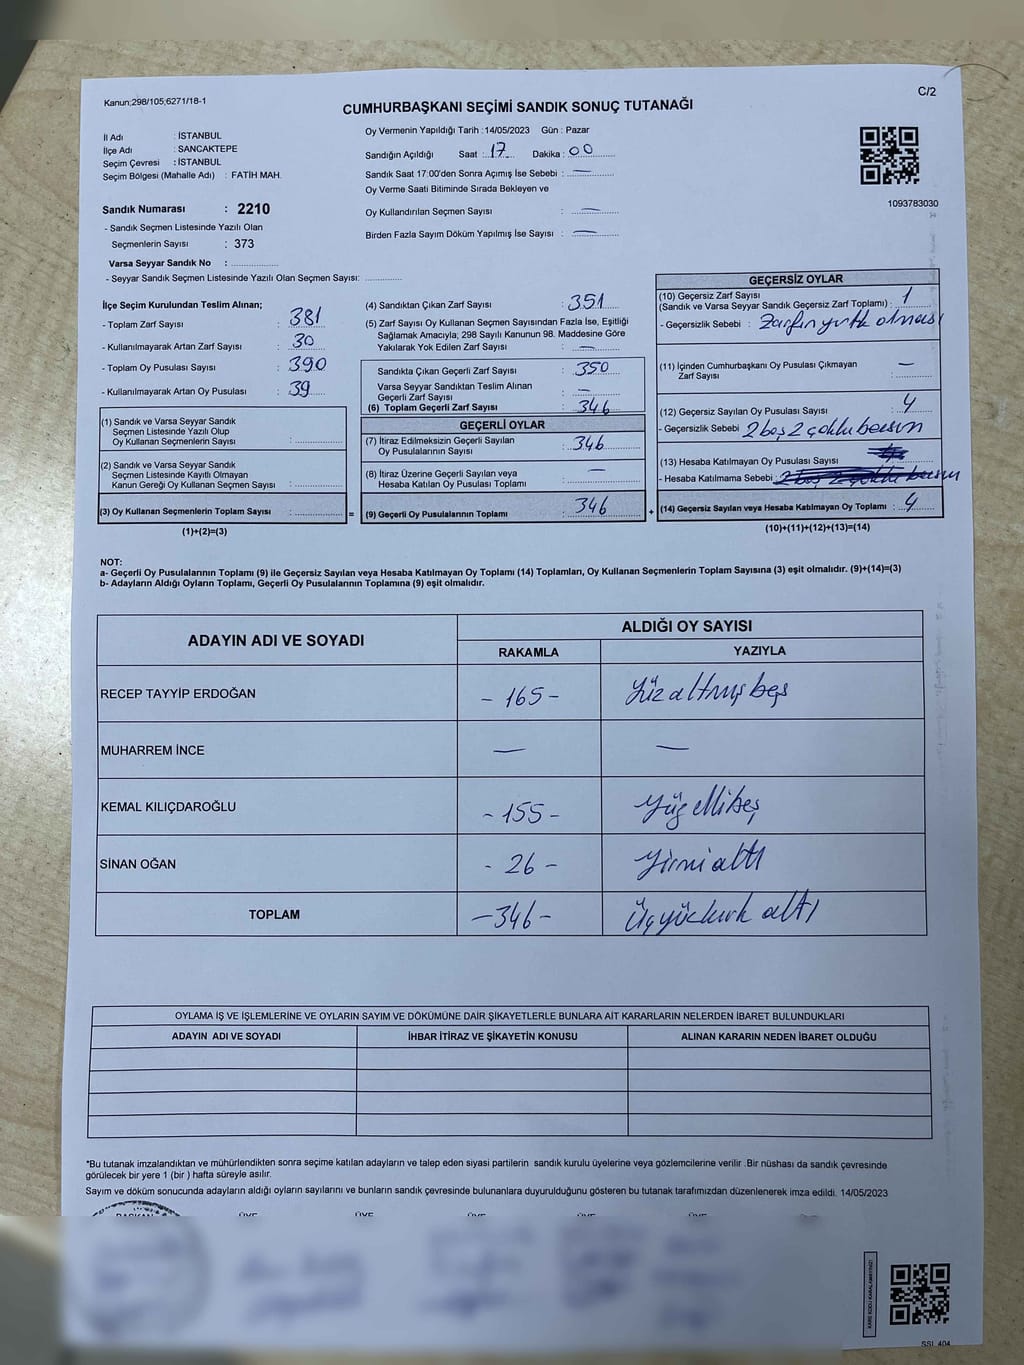 Kanun;298/105;6271/18-1
C/2
CUMHURBAŞKANI SEÇİMİ SANDIK SONUÇ TUTANAĞI
İl Adı : İSTANBUL
İlçe Adı : SANCAKTEPE
Seçim Çevresi : İSTANBUL
Seçim Bölgesi (Mahalle Adı) : FATİH MAH.
Sandık Numarası : 2210
- Sandık Seçmen Listesinde Yazılı Olan
Seçmenlerin Sayısı : 373
Varsa Seyyar Sandık No :
- Seyyar Sandık Seçmen Listesinde Yazılı Olan Seçmen Sayısı:
Oy Vermenin Yapıldığı Tarih :14/05/2023 Gün : Pazar
Sandığın Açıldığı Saat : 17 Dakika : 00
Sandık Saat 17:00'den Sonra Açımış İse Sebebi : —
Oy Verme Saati Bitiminde Sırada Bekleyen ve
Oy Kullandırılan Seçmen Sayısı : —
Birden Fazla Sayım Döküm Yapılmış İse Sayısı : —
1093783030
İlçe Seçim Kurulundan Teslim Alınan;
- Toplam Zarf Sayısı : 381
- Kullanılmayarak Artan Zarf Sayısı : 30
- Toplam Oy Pusulası Sayısı : 390
- Kullanılmayarak Artan Oy Pusulası : 39
(1) Sandık ve Varsa Seyyar Sandık
Seçmen Listesinde Yazılı Olup
Oy Kullanan Seçmenlerin Sayısı :
(2) Sandık ve Varsa Seyyar Sandık
Seçmen Listesinde Kayıtlı Olmayan
Kanun Gereği Oy Kullanan Seçmen Sayısı :
(3) Oy Kullanan Seçmenlerin Toplam Sayısı :
=
(1)+(2)=(3)
(4) Sandıktan Çıkan Zarf Sayısı : 351
(5) Zarf Sayısı Oy Kullanan Seçmen Sayısından Fazla İse, Eşitliği
Sağlamak Amacıyla; 298 Sayılı Kanunun 98. Maddesine Göre
Yakılarak Yok Edilen Zarf Sayısı : —
Sandıkta Çıkan Geçerli Zarf Sayısı : 350
Varsa Seyyar Sandıktan Teslim Alınan
Geçerli Zarf Sayısı : —
(6) Toplam Geçerli Zarf Sayısı : 346
GEÇERLİ OYLAR
(7) İtiraz Edilmeksizin Geçerli Sayılan
Oy Pusulalarının Sayısı : 346
(8) İtiraz Üzerine Geçerli Sayılan veya
Hesaba Katılan Oy Pusulası Toplamı : —
(9) Geçerli Oy Pusulalarının Toplamı : 346
+
GEÇERSİZ OYLAR
(10) Geçersiz Zarf Sayısı
(Sandık ve Varsa Seyyar Sandık Geçersiz Zarf Toplamı) : 1
- Geçersizlik Sebebi : Zarfın yırtık olması
(11) İçinden Cumhurbaşkanı Oy Pusulası Çıkmayan
Zarf Sayısı : —
(12) Geçersiz Sayılan Oy Pusulası Sayısı : 4
- Geçersizlik Sebebi : 2 boş 2 çoklu basım
(13) Hesaba Katılmayan Oy Pusulası Sayısı :
- Hesaba Katılmama Sebebi :
(14) Geçersiz Sayılan veya Hesaba Katılmayan Oy Toplamı : 4
(10)+(11)+(12)+(13)=(14)
NOT:
a- Geçerli Oy Pusulalarının Toplamı (9) ile Geçersiz Sayılan veya Hesaba Katılmayan Oy Toplamı (14) Toplamları, Oy Kullanan Seçmenlerin Toplam Sayısına (3) eşit olmalıdır. (9)+(14)=(3)
b- Adayların Aldığı Oyların Toplamı, Geçerli Oy Pusulalarının Toplamına (9) eşit olmalıdır.
ADAYIN ADI VE SOYADI
ALDIĞI OY SAYISI
RAKAMLA YAZIYLA
RECEP TAYYİP ERDOĞAN - 165 - Yüz altmış beş
MUHARREM İNCE — —
KEMAL KILIÇDAROĞLU - 155 - Yüz elli beş
SİNAN OĞAN - 26 - Yirmi altı
TOPLAM - 346 - Üçyüzkırk altı
OYLAMA İŞ VE İŞLEMLERİNE VE OYLARIN SAYIM VE DÖKÜMÜNE DAİR ŞİKAYETLERLE BUNLARA AİT KARARLARIN NELERDEN İBARET BULUNDUKLARI
ADAYIN ADI VE SOYADI İHBAR İTİRAZ VE ŞİKAYETİN KONUSU ALINAN KARARIN NEDEN İBARET OLDUĞU
*Bu tutanak imzalandıktan ve mühürlendikten sonra seçime katılan adayların ve talep eden siyasi partilerin sandık kurulu üyelerine veya gözlemcilerine verilir .Bir nüshası da sandık çevresinde
görülecek bir yere 1 (bir ) hafta süreyle asılır.
Sayım ve döküm sonucunda adayların aldığı oyların sayılarını ve bunların sandık çevresinde bulunanlara duyurulduğunu gösteren bu tutanak tarafımızdan düzenlenerek imza edildi. 14/05/2023
BAŞKAN ÜYE ÜYE ÜYE ÜYE ÜYE ÜYE
KARE KODU KARALAMAYINIZ!
SSI_404